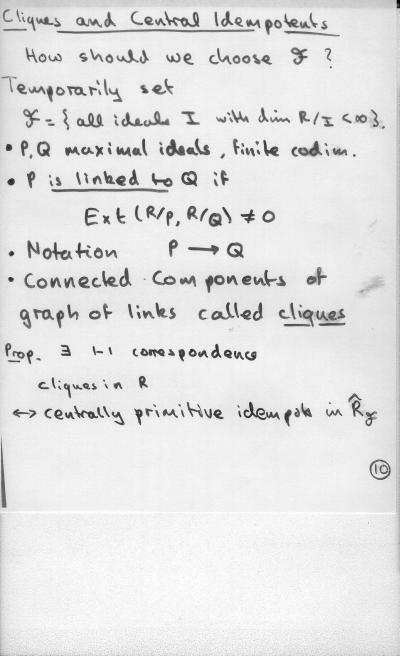 Cliques and Central Idempotents
How should we choose ℱ ?
Temporarily set
ℱ = { all ideals I with dim R/I < ∞ }.
• P, Q maximal ideals, finite codim.
• P is linked to Q if
Ext (R/P, R/Q) ≠ 0
• Notation P → Q
• Connected Components of
graph of links called cliques
Prop. ∃ 1-1 correspondence
cliques in R
↔ centrally primitive idempots in R̂ℱ
10